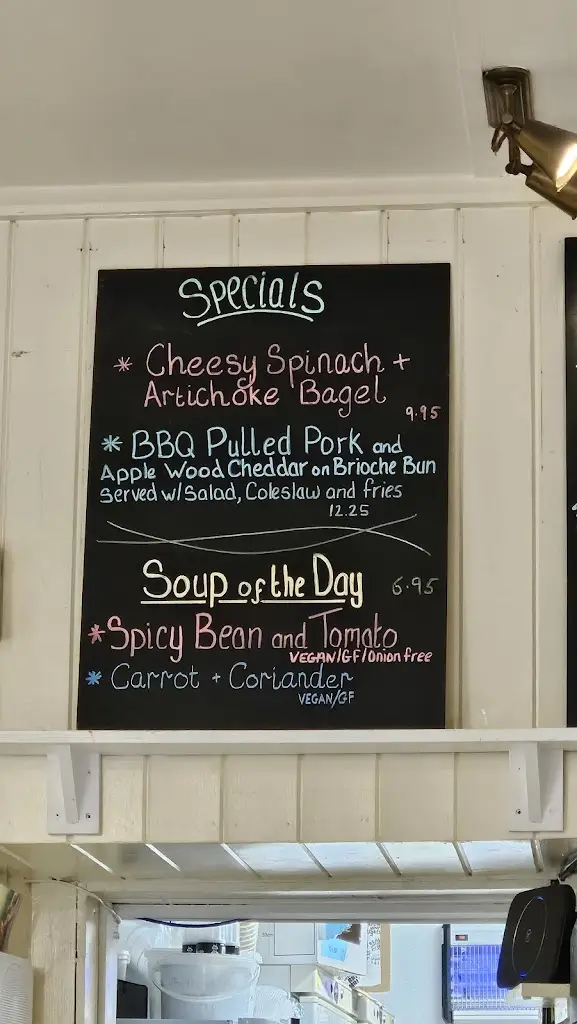 Specials
* Cheesy Spinach +
Artichoke Bagel
9.95
* BBQ Pulled Pork and
Apple Wood Cheddar on Brioche Bun
Served w/ Salad, Coleslaw and fries
12.25
Soup of the Day 6.95
* Spicy Bean and Tomato
VEGAN/GF/Onion free
* Carrot + Coriander
VEGAN/GF